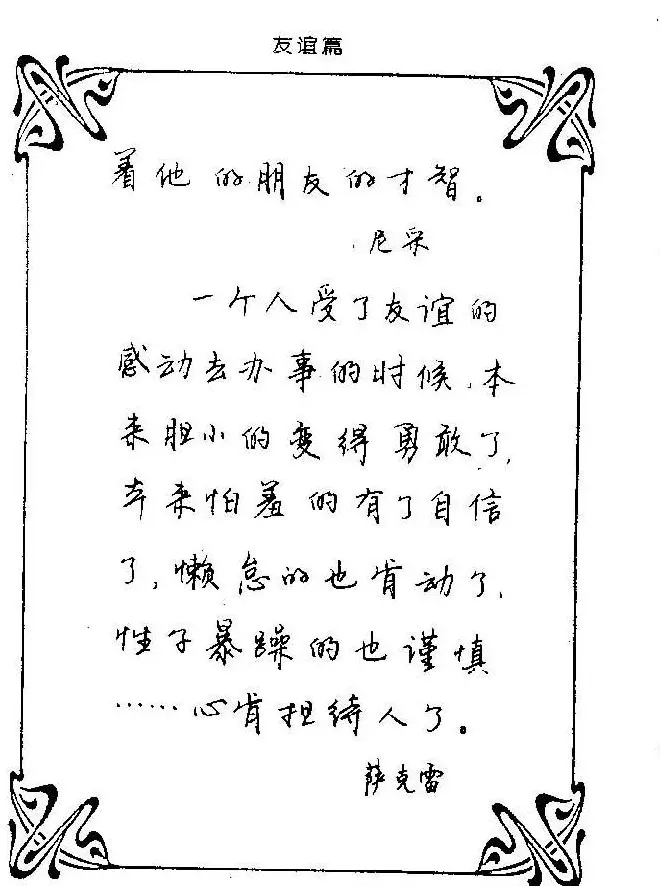 友谊篇
着他的朋友的才智。
尼采
一个人受了友谊的
感动去办事的时候,本
来胆小的变得勇敢了,
本来怕羞的有了自信
了,懒怠的也肯动了,
性子暴躁的也谨慎
……心肯担待人了。
萨克雷